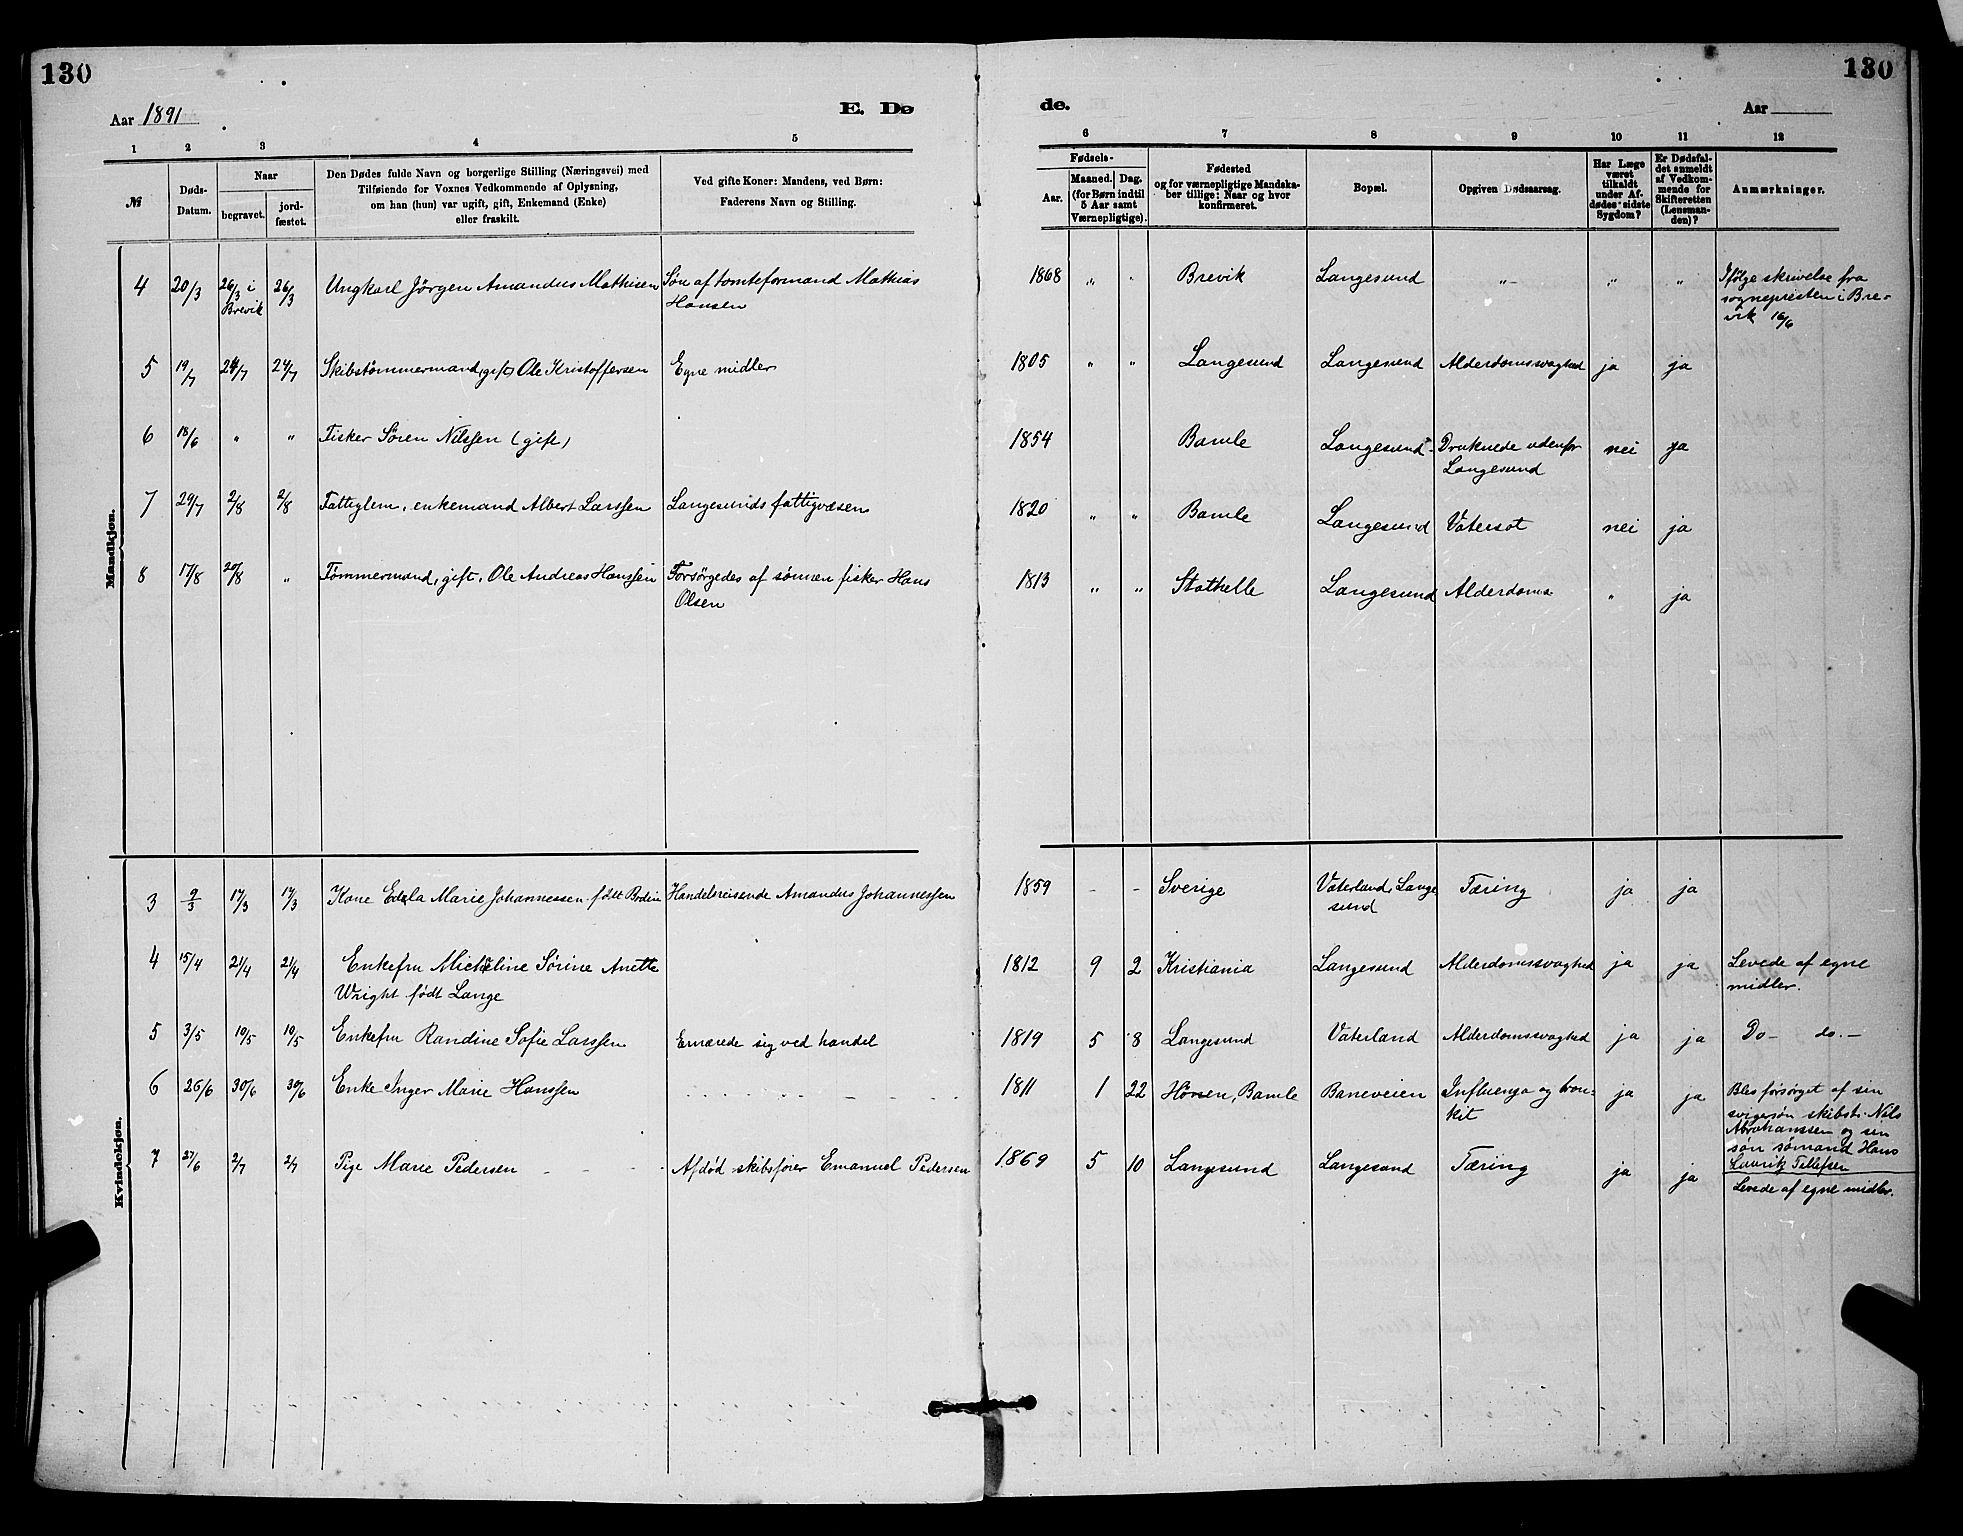 130
130
Aar 1891
E. Dø
de.
Aar
1 2 3 4 5
6 7 8 9 10 11 12
№
Døds-
Datum.
Naar
begravet.
jord-
fæstet.
Den Dødes fulde Navn og borgerlige Stilling (Næringsvei) med
Tilføiende for Voxnes Vedkommende af Oplysning,
om han (hun) var ugift, gift, Enkemand (Enke)
eller fraskilt.
Ved gifte Koner: Mandens, ved Børn:
Faderens Navn og Stilling.
Fødsels-
Aar.
Maaned. Dag.
(for Børn indtil
5 Aar samt
Værnepligtige).
Fødested
og for værnepligtige Mandska-
ber tillige: Naar og hvor
konfirmeret.
Bopæl.
Opgiven Dødsaarsag.
Har Læge
været
tilkaldt
under Af-
dødes sidste
Sygdom?
Er Dødsfal-
det anmeldt
af Vedkom-
mende for
Skifteretten
(Lensman-
den)?
Anmærkninger.
Mandkjøn.
4 20/3 26/3 i Brevik 26/3 Ungkarl Jörgen Amandus Mathisen Søn af tomteformand Mathias
Hansen
1868 " " Brevik Langesund " " " Ifölge skrivelse fra
sognepresten i Bre-
vik 16/6
5 19/7 24/7 24/7 Skibstømmermand (gift) Ole Kristoffersen Egne midler 1805 " " Langesund Langesund Alderdomssvaghed ja ja
6 18/6 " " Fisker Sören Nilssen (gift) 1854 Bamle Langesund Druknede udenfor nei ja
Langesund
7 29/7 2/8 2/8 Fattiglem, enkemand Albert Larssen Langesunds fattigvæsen 1820 " " Bamle Langesund Vatersot nei ja
8 17/8 20/8 " Tømmermand, gift, Ole Andreas Hanssen Forsørgedes af sønnen fisker Hans
Olsen
1813 " " Stathelle Langesund Alderdoms " ja
Kvindekjøn.
3 9/3 17/3 17/3 Kone Edla Marie Johannessen født Bodin Handelsreisende Amandus Johannessen 1859 - - Sverige Vaterland, Lange Tæring ja ja
sund
4 15/4 21/4 21/4 Enkefru Micheline Sörine Anette
Wright født Lange
1812 9 2 Kristiania Langesund Alderdomssvaghed ja ja Levede af egne
midler.
5 3/5 10/5 10/5 Enkefru Randine Sofie Larssen Ernærede sig ved handel 1819 5 8 Langesund Vaterland Alderdomssvaghed ja ja Do - do. -
6 26/6 30/6 30/6 Enke Inger Marie Hanssen 1811 1 22 Hönsen, Bamle Baneveien Influenza og bron-
kit
ja ja Blev forsörget af sin
svigersøn skibst. Nils
Abrahanssen og sin
søn sømand Hans
Laurik Tellefsen
7 27/6 2/7 2/7 Pige Marie Pedersen Afdød skibsfører Emanuel Pedersen 1869 5 10 Langesund Langesund Tæring ja ja
Levede af egne midler.